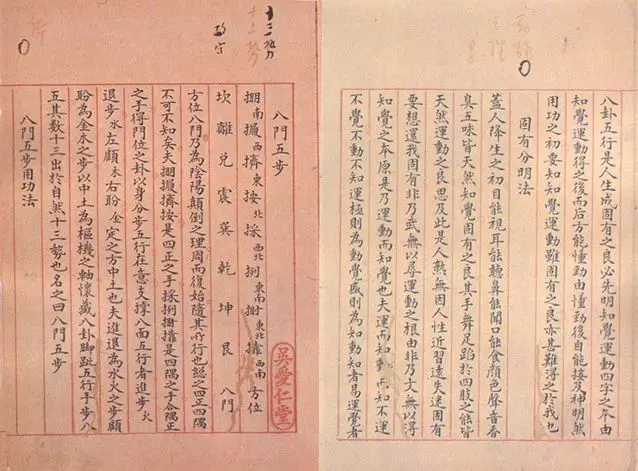 十三勢
八門五步
掤南攦西擠東按北採西北挒東南掤東北靠西南 方位
坎離兌震巽乾坤艮 八門
方位八門乃為陰陽顛倒之理周而復始隨其所行也總之四正四隅
不可不知矣夫掤攦擠按是四正之手採挒掤靠是四隅之手合隅正
之手得門位之卦以身分步五行在意支撐八面五行者進步火
退步水左顧木右盼金定之方中土也夫進退為水火之步顧
盼為金木之步以中土為樞機之軸懷藏八卦腳跐五行手步八
五其數十三出於自然十三勢也名之曰八門五步
八門五步用功法
吳愛仁堂
八卦五行是人生成固有之良必先明知覺運動四字之本由
知覺運動得之後而后方能懂勁由懂勁後自能接及神明然
用功之初要知知覺運動雖固有之良亦甚難得之於我也
固有分明法
蓋人降生之初目能視耳能聽鼻能聞口能食顏色聲音香
臭五味皆天然知覺固有之良其手舞足蹈於四肢之能皆
天然運動之良思及此是人孰無因人性近習遠失迷固有
要想還我固有非乃武無以尋運動之根由非乃文無以得
知覺之本原是乃運動而知覺也夫運而知動而知不運
不覺不動不知運極則為動覺盛則為知動知者易運覺者